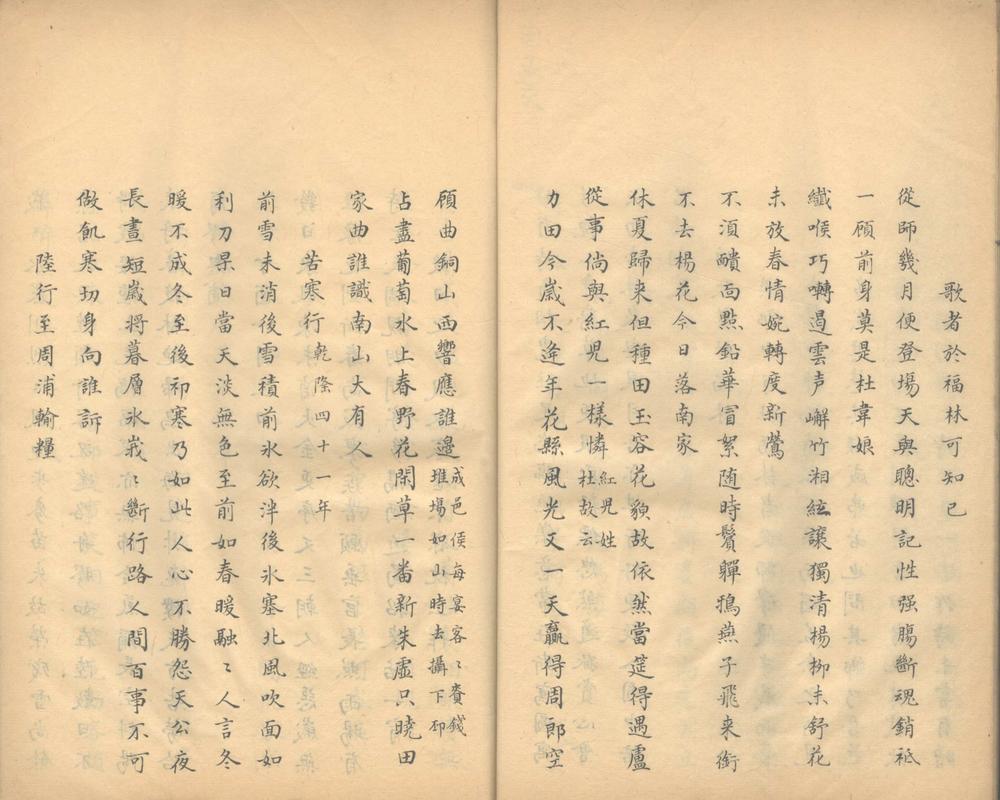 歌者於福林可知已
從師幾月便登塲天與聰明記性强腸斷魂銷袛
一顧前身莫是杜韋娘
纖喉巧囀遏雲声嶰竹湘絃讓獨清楊柳未舒花
未放春情婉轉度新鶯
不湏礩面㸃鉛華冐絮随時鬢軃鴉燕子飛来銜
不去楊花今日落南家
休夏歸来但種田玉容花貌故依然當筵得遇盧
從事倘與紅児一樣憐紅児姓
杜故云
力田今歳不逢年花縣風光又一天贏得周郎空
顧曲銅山西響應誰邉成邑侯每宴客〻賚錢
堆塲如山時去攝下邳
占盡葡萄水上春野花閑草一畨新朱虚只曉田
家曲誰識南山大有人
苦寒行乾隆四十一年
前雪未消後雪積前氷欲泮後氷塞北風吹面如
利刀杲日當天淡無色至前如春暖融〻人言冬
暖不成冬至後祁寒乃如此人心不勝怨天公夜
長晝短歳將暮層氷峩〻斷行路人間百事不可
做飢寒切身向誰訴
陸行至周浦輸糧